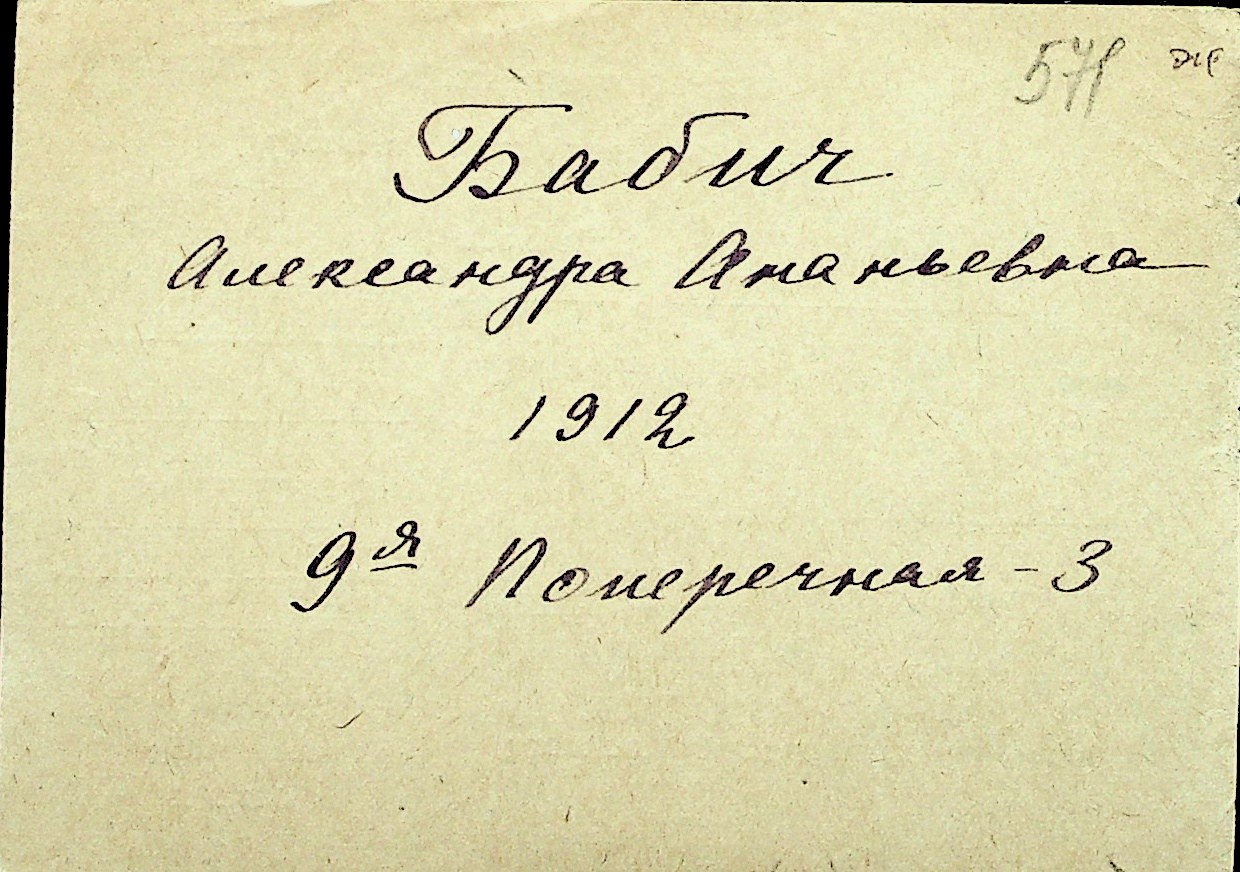 571
Бабич
Александра Ананьевна
1912
9я Поперечная - 3